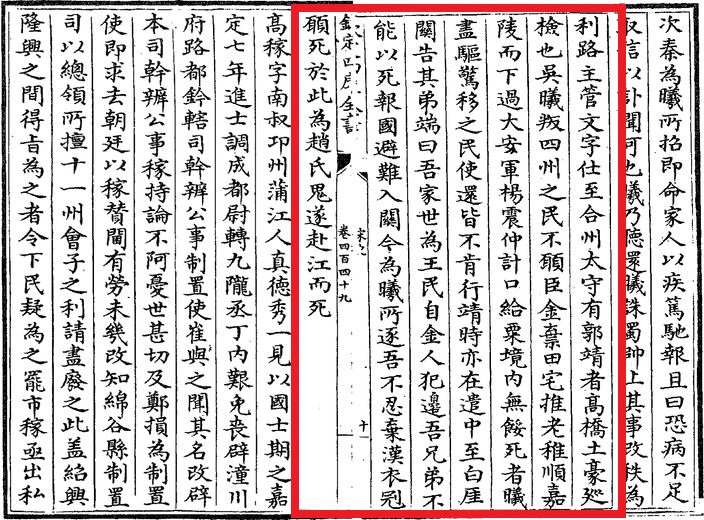 次秦為曦所招即命家人以疾篤馳報且曰恐病不足
取信以訃聞可也曦乃聽還曦誅蜀帥上其事改秩為
利路主管文字仕至合州太守有郭靖者髙橋土豪廵
檢也吳曦叛四州之民不願臣金棄田宅推老稚順嘉
陵而下過大安軍楊震仲計口給粟境内無餒死者曦
盡驅驚移之民使還皆不肯行靖時亦在遣中至白厓
闗告其弟端曰吾家世為王民自金人犯邊吾兄弟不
能以死報國避難入闗今為曦所逐吾不忍棄漢衣冠
欽定四庫全書
宋史
卷四百四十九
十一
願死於此為趙氏鬼遂赴江而死
髙稼字南叔邛州蒲江人真德秀一見以國士期之嘉
定七年進士調成都尉轉九隴丞丁内艱免喪辟潼川
府路都鈐轄司幹辦公事制置使崔與之聞其名改辟
本司幹辦公事稼持論不阿憂世甚切及鄭損為制置
使即求去朝廷以稼贊閫有勞未幾改知綿谷縣制置
司以總領所擅十一州會子之利請盡廢之此蓋紹興
隆興之間得旨為之者令下民疑為之罷市稼亟出私